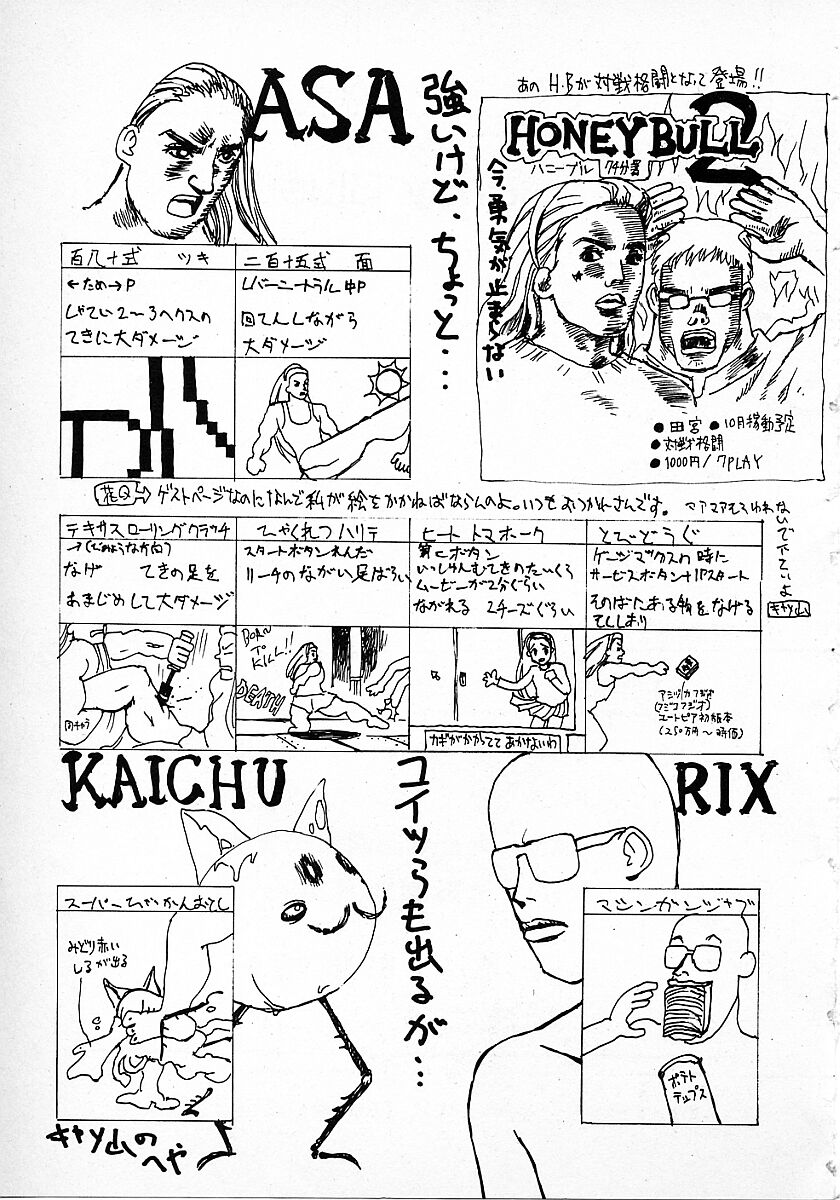 ASA
強いけど、ちょっと…
あの H・Bが対戦格闘となって登場!!
HONEY BULL 2
ハニーブル
今、勇気が止まらない
●田宮 ●10月稼動予定
●対戦格闘
●1000円/7PLAY
百八十式 ツキ
←ため→P
しゃてい2〜3ヘクスの
てきに大ダメージ
二百十五式 面
レバーニートラル中P
回てんしながら
大ダメージ
ゲストページなのになんで私が絵をかかねばならんのよ。いつもおつかれさんです。
マアマアそういわれないで下さいよ
キャソ山
テキサスローリングクラッチ
なげ てきの足を
あまじめして大ダメージ
ひゃくれつハリテ
スタートボタンれんだ
リーチのながい足ばらい
ヒートトマホーク
第Cボタン
いっしゅんむてきのたいくう
ムービーが2分ぐらい
ながれる 2チーズぐらい
とびどうぐ
ゲージマックスの時に
サービスボタン+1Pスタート
そのばにある物をなげる
BORN TO KILL!!
DEATH
カギがかかってて あかないわ
ユートピア初版本
(250万円〜時価)
KAICHU
コイツらも出るが…
RIX
みどり赤い
しるが出る
マシンガンジャブ
ポテト
チップス
キャソ山の
へや